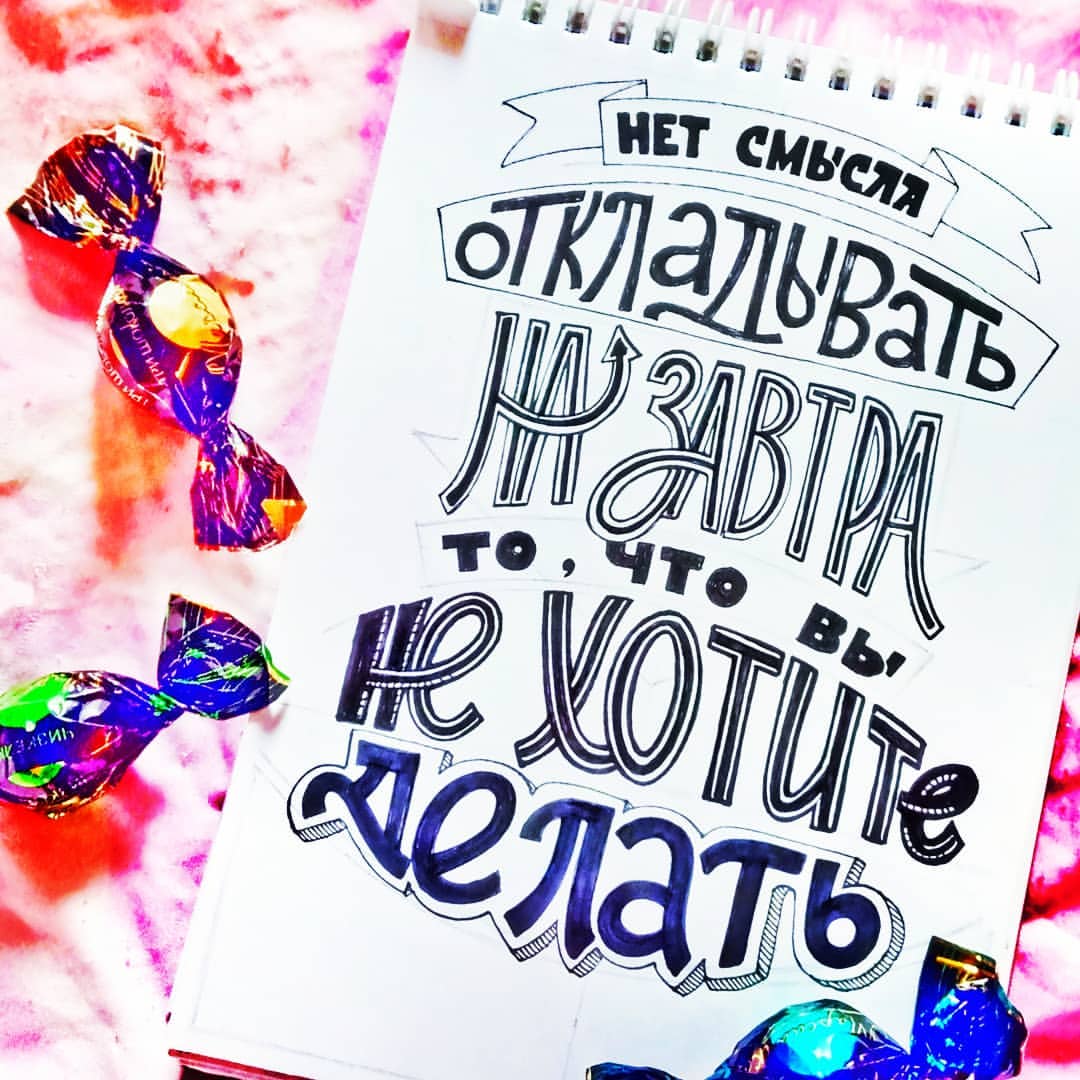 НЕТ СМЫСЛА
ОТКЛАДЫВАТЬ
НА ЗАВТРА
ТО, ЧТО ВЫ
НЕ ХОТИТЕ
ДЕЛАТЬ